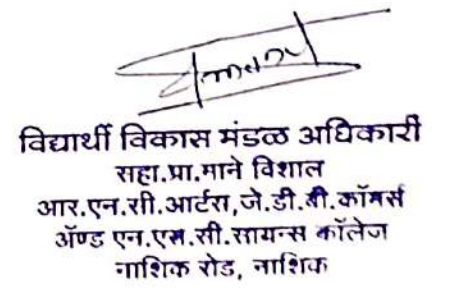 विद्यार्थी विकास मंडळ अधिकारी
सहा.प्रा.माने विशाल
आर.एन.सी.आर्टस,जे.डी.बी.कॉमर्स
ॲण्ड एन.एस.सी.सायन्स कॉलेज
नाशिक रोड, नाशिक